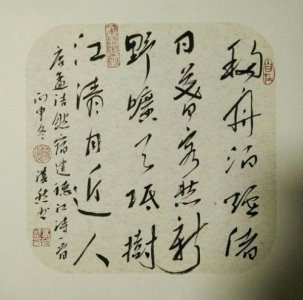 移舟泊煙渚
日暮客愁新
野曠天低樹
江清月近人
唐孟浩然宿建德江诗一首
丙申冬